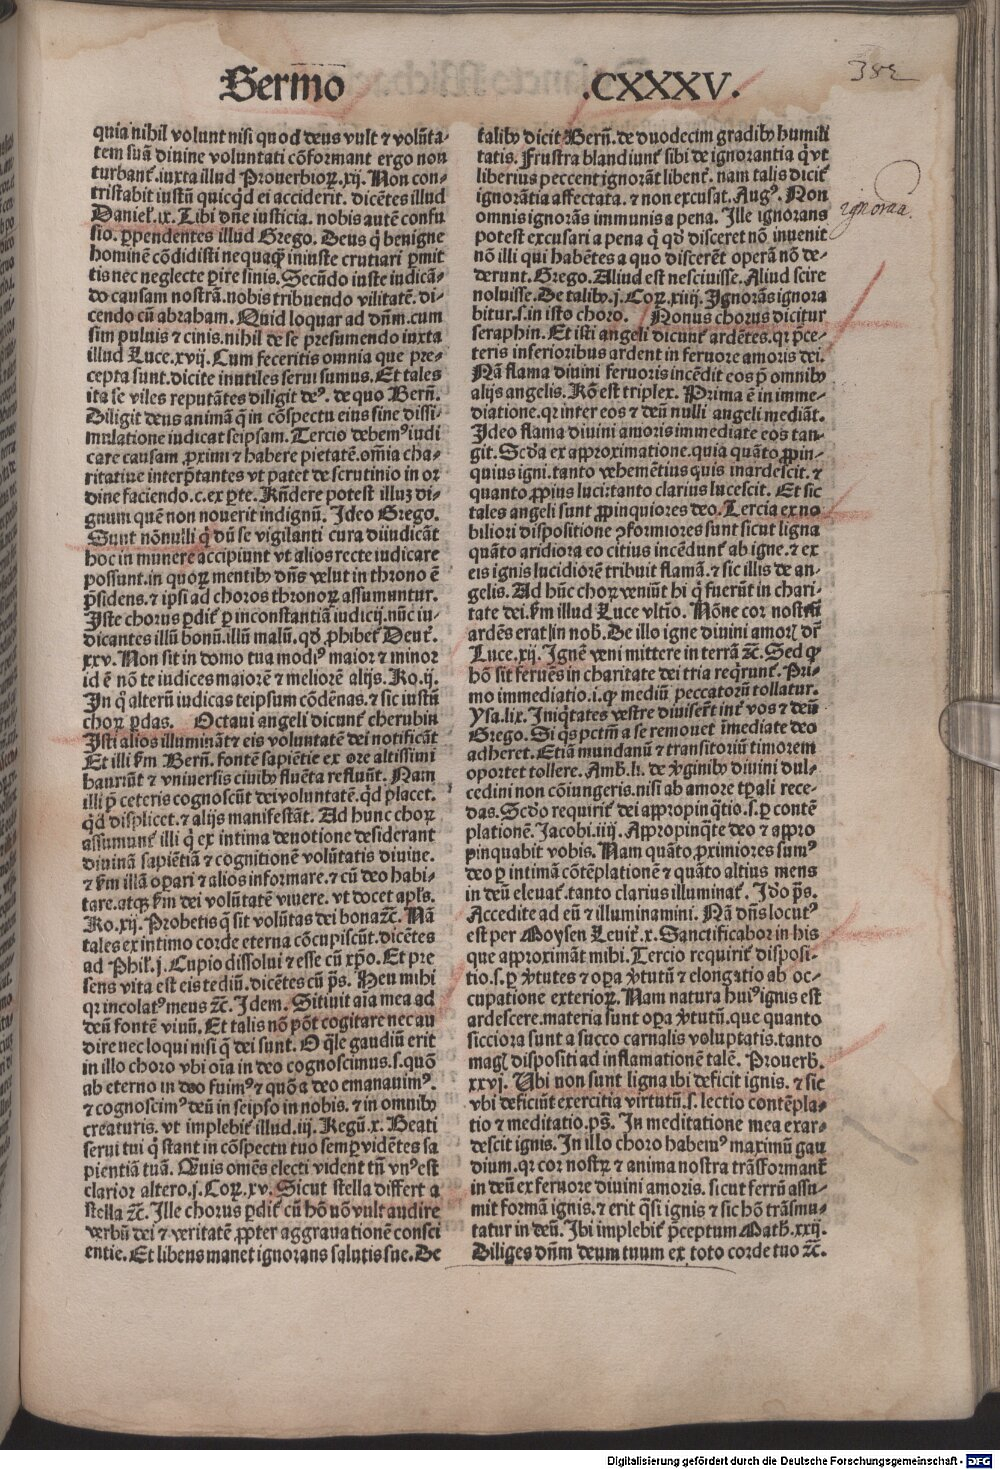 Sermo .CXXXV.
382
quia nihil volunt nisi quod deus vult ⁊ volũta-
tem suã divine voluntati cõformant ergo non
turbant̃. iuxta illud Proverbioꝝ. xij. Non con-
tristabit iustũ quicq̃d ei acciderit. dicẽtes illud
Danieł. ix. Tibi dñe iusticia. nobis autẽ confu
sio. ꝑpendentes illud Grego. Deus q̃ benigne
hominẽ cõdidisti nequaq̃ꝫ iniuste crutiari ꝑmit
tis nec neglecte ꝑire sinis. Secũdo iuste iudicã-
do causam nostrã. nobis tribuendo vilitatẽ. di-
cendo cũ abraham. Quid loquar ad dñm. cum
sim puluis ⁊ cinis. nihil de se presumendo iuxta
illud Luce. xvij. Cum feceritis omnia que pre-
cepta sunt. dicite inutiles serui sumus. Et tales
ita se viles reputãtes diligit deꝰ. de quo Berñ.
Diligit deus animã q̃ in cõspectu eius sine dissi-
mulatione iudicat seipsam. Tercio debemꝰ iudi
care causam ꝓximi ⁊ habere pietatẽ. om̃ia cha-
ritatiue interp̃tantes vt patet de scrutinio in or
dine faciendo. c. ex ꝑte. Rñdere potest illuꝫ di-
gnum quẽ non noverit indignũ. Ideo Grego.
Sunt nõnulli q̃ dũ se vigilanti cura diiudicãt
hoc in munere accipiunt vt alios recte iudicare
possunt. in quoꝝ mentibꝰ dñs velut in throno ẽ
p̃sidens. ⁊ ipsi ad choros thronoꝝ assumuntur.
Iste chorus ꝑdit̃ ꝑ inconstantiã iudicij. nũc iu-
dicantes illũ bonũ. illũ malũ. qd̃ ꝓhibet̃ Deut̃.
xxv. Non sit in domo tua modiꝰ maior ⁊ minor
id ẽ nõ te iudices maiorẽ ⁊ meliorẽ alijs. Ro. ij.
In q̃ alterũ iudicas teipsum cõdẽnas. ⁊ sic iustũ
choꝝ ꝑdas. Octaui angeli dicunt̃ cherubin
Isti alios illuminãt ⁊ eis voluntatẽ dei notificãt
Et illi ẜm Berñ. fontẽ sapiẽtie ex ore altissimi
hauriũt ⁊ vniuersis ciuibꝰ fluẽta refluũt. Nam
illi p̃ ceteris cognoscũt dei voluntatẽ. q̃d placet.
q̃d displicet. ⁊ alijs manifestãt. Ad hunc choꝝ
assumunt̃ illi q̃ ex intima deuotione desiderant
diuinã sapiẽtiã ⁊ cognitionẽ volũtatis diuine.
⁊ ẜm illã oꝑari ⁊ alios informare. ⁊ cũ deo habi-
tare. atqꝫ ẜm dei volũtatẽ viuere. vt docet apl̃s.
Ro. xij. Probetis q̃ sit volũtas dei bona ⁊c̃. Nã
tales ex intimo corde eterna cõcupiscũt. dicẽtes
ad Phił. j. Cupio dissolui ⁊ esse cũ xp̃o. Et pre
sens vita est eis tediũ. dicẽtes cũ p̃s. Heu mihi
qꝛ incolatꝰ meus ⁊c̃. Idem. Sitiuit aĩa mea ad
deũ fontẽ viuũ. Et talis nõ põt cogitare nec au
dire nec loqui nisi q̃ dei sunt. O q̃le gaudiũ erit
in illo choro vbi oĩa in deo cognoscimus. s. quõ
ab eterno in deo fuimꝰ ⁊ quõ a deo emanauimꝰ.
⁊ cognoscimꝰ deũ in seipso in nobis. ⁊ in omnibꝰ
creaturis. vt implebit̃ illud. iij. Regũ. x. Beati
serui tui q̃ stant in cõspectu tuo semꝑ vidẽtes sa
pientiã tuã. Quis om̃es electi vident tñ vnꝰ est
clarior altero. j. Coꝝ. xv. Sicut stella differt a
stella ⁊c̃. Ille chorus ꝑdit̃ cũ hõ nõ vult audire
verbũ dei ⁊ veritatẽ ꝓpter aggrauationẽ consci
entie. Et libens manet ignorans salutis sue. De
talibꝰ dicit Berñ. de duodecim gradibꝰ humili
tatis. Frustra blandiunt̃ sibi de ignorantia q̃ vt
liberius peccent ignorãt libent̃. nam talis dicit̃
ignorãtia affectata. ⁊ non excusat. Augꝰ. Non
omnis ignorãs immunis a pena. Ille ignorans
potest excusari a pena q̃ qd̃ disceret nõ inuenit
nõ illi qui habẽtes a quo discerẽt operã nõ de-
derunt. Grego. Aliud est nesciuisse. Aliud scire
noluisse. De talibꝰ. j. Coꝝ. xiiij. Ignorãs ignora
bitur. s. in isto choro. Nonus chorus dicitur
seraphin. Et isti angeli dicunt̃ ardẽtes. qꝛ p̃ce-
teris inferioribus ardent in feruore amoris dei.
Nã flama diuini feruoris incẽdit eos p̃ omnibꝰ
alijs angelis. Rõ est triplex. Prima ẽ in imme-
diatione. qꝛ inter eos ⁊ deũ nulli angeli mediãt.
Ideo flama diuini amoris immediate eos tan-
git. Scd̃a ex approximatione. quia quãto ꝓpin-
quius igni. tanto vehemẽtius quis inardescit. ⁊
quanto ꝓpius luci: tanto clarius lucescit. Et sic
tales angeli sunt ꝓpinquiores deo. Tercia ex no
biliori dispositione ꝯformiores sunt sicut ligna
quãto aridiora eo citius incẽdunt̃ ab igne. ⁊ ex
eis ignis lucidiorẽ tribuit flamã. ⁊ sic illis de an-
gelis. Ad hũc choꝝ veniũt hi q̃ fuerũt in chari-
tate dei. ẜm illud Luce vltĩo. Nõne cor nostrũ
ardẽs erat in nob̃. De illo igne diuini amoꝝ dr̃
Luce. xij. Ignẽ veni mittere in terrã ⁊c̃. Sed qꝫ
hõ sit feruẽs in charitate dei tria req̃runt̃. Pri-
mo immediatio. i. qꝫ mediũ peccatorũ tollatur.
Ysa. lix. Iniq̃tates vestre diuiserũt int̃ vos ⁊ deũ
Grego. Si q̃s pctm̃ a se remouet ĩmediate deo
adheret. Etiã mundanũ ⁊ transitoriũ timorem
oportet tollere. Amb. li. de v̾ginibꝰ diuini dul-
cedini non cõiungeris. nisi ab amore tp̃ali rece-
das. Scd̃o requirit̃ dei appropinq̃tio. s. ꝑ contẽ
plationẽ. Jacobi. iiij. Appropinq̃te deo ⁊ appro
pinquabit vobis. Nam quãto ꝓximiores sumꝰ
deo ꝑ intimã cõtẽplationẽ ⁊ quãto altius mens
in deũ eleuat̃. tanto clarius illuminat̃. Iõo p̃s.
Accedite ad eũ ⁊ illuminamini. Nã dñs locutꝰ
est per Moysen Leuit̃. x. Sanctificabor in his
que approximãt mihi. Tercio requirit̃ disposi-
tio. s. ꝑ v̾tutes ⁊ oꝑa v̾tutũ ⁊ elongatio ab oc-
cupatione exterioꝝ. Nam natura huiꝰ ignis est
ardescere. materia sunt oꝑa v̾tutũ. que quanto
sicciora sunt a succo carnalis voluptatis. tanto
magꝭ dispositi ad inflamationẽ talẽ. Prouerb̃.
xxvj. Ubi non sunt ligna ibi deficit ignis. ⁊ sic
vbi deficiũt exercitia virtutũ. s. lectio contẽpla-
tio ⁊ meditatio. ps̃. In meditatione mea exar-
descit ignis. In illo choro habemꝰ maximũ gau
dium. qꝛ cor nostꝝ ⁊ anima nostra trãsformant̃
in deũ ex feruore diuini amoris. sicut ferrũ assu-
mit formã ignis. ⁊ erit q̃si ignis ⁊ sic hõ trãsmu-
tatur in deũ. Ibi implebit̃ p̃ceptum Math. xxij.
Diliges dñm deum tuum ex toto corde tuo ⁊c̃.
Digitalisierung gefördert durch die Deutsche Forschungsgemeinschaft - DFG